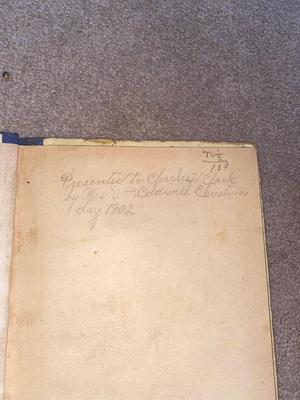 Presented to Charles H Clark
by Mrs Coldwell Christmas
day 1902
100